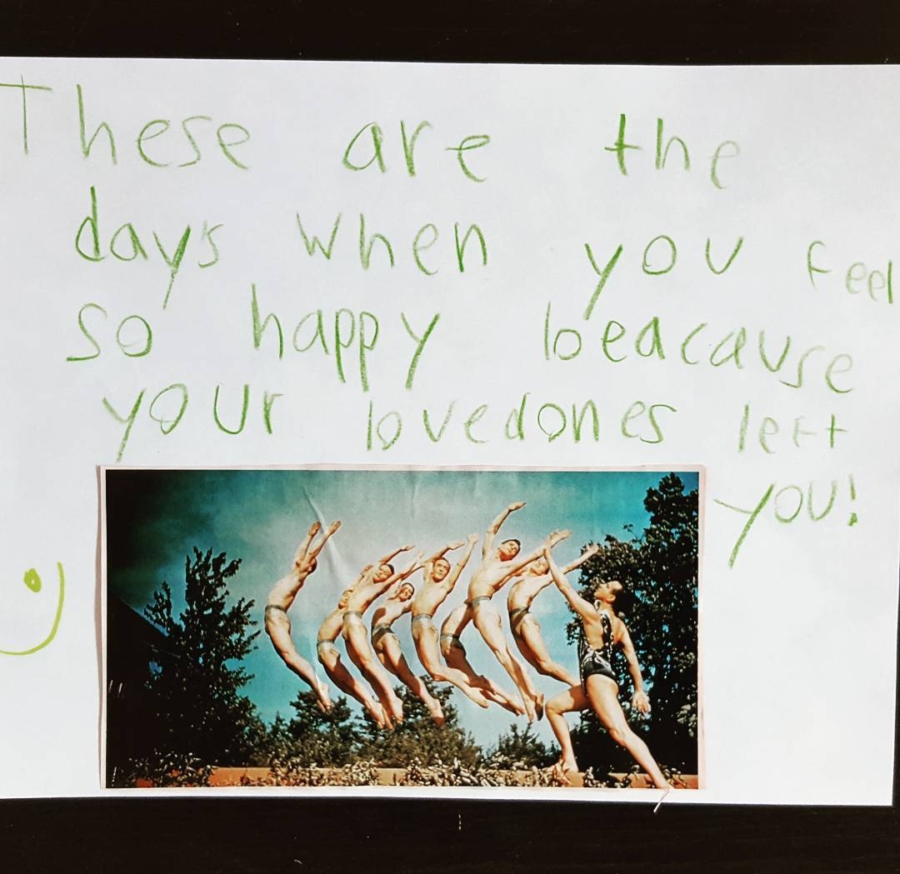 These are the
days when you feel
so happy beacause
your lovedones left
you!